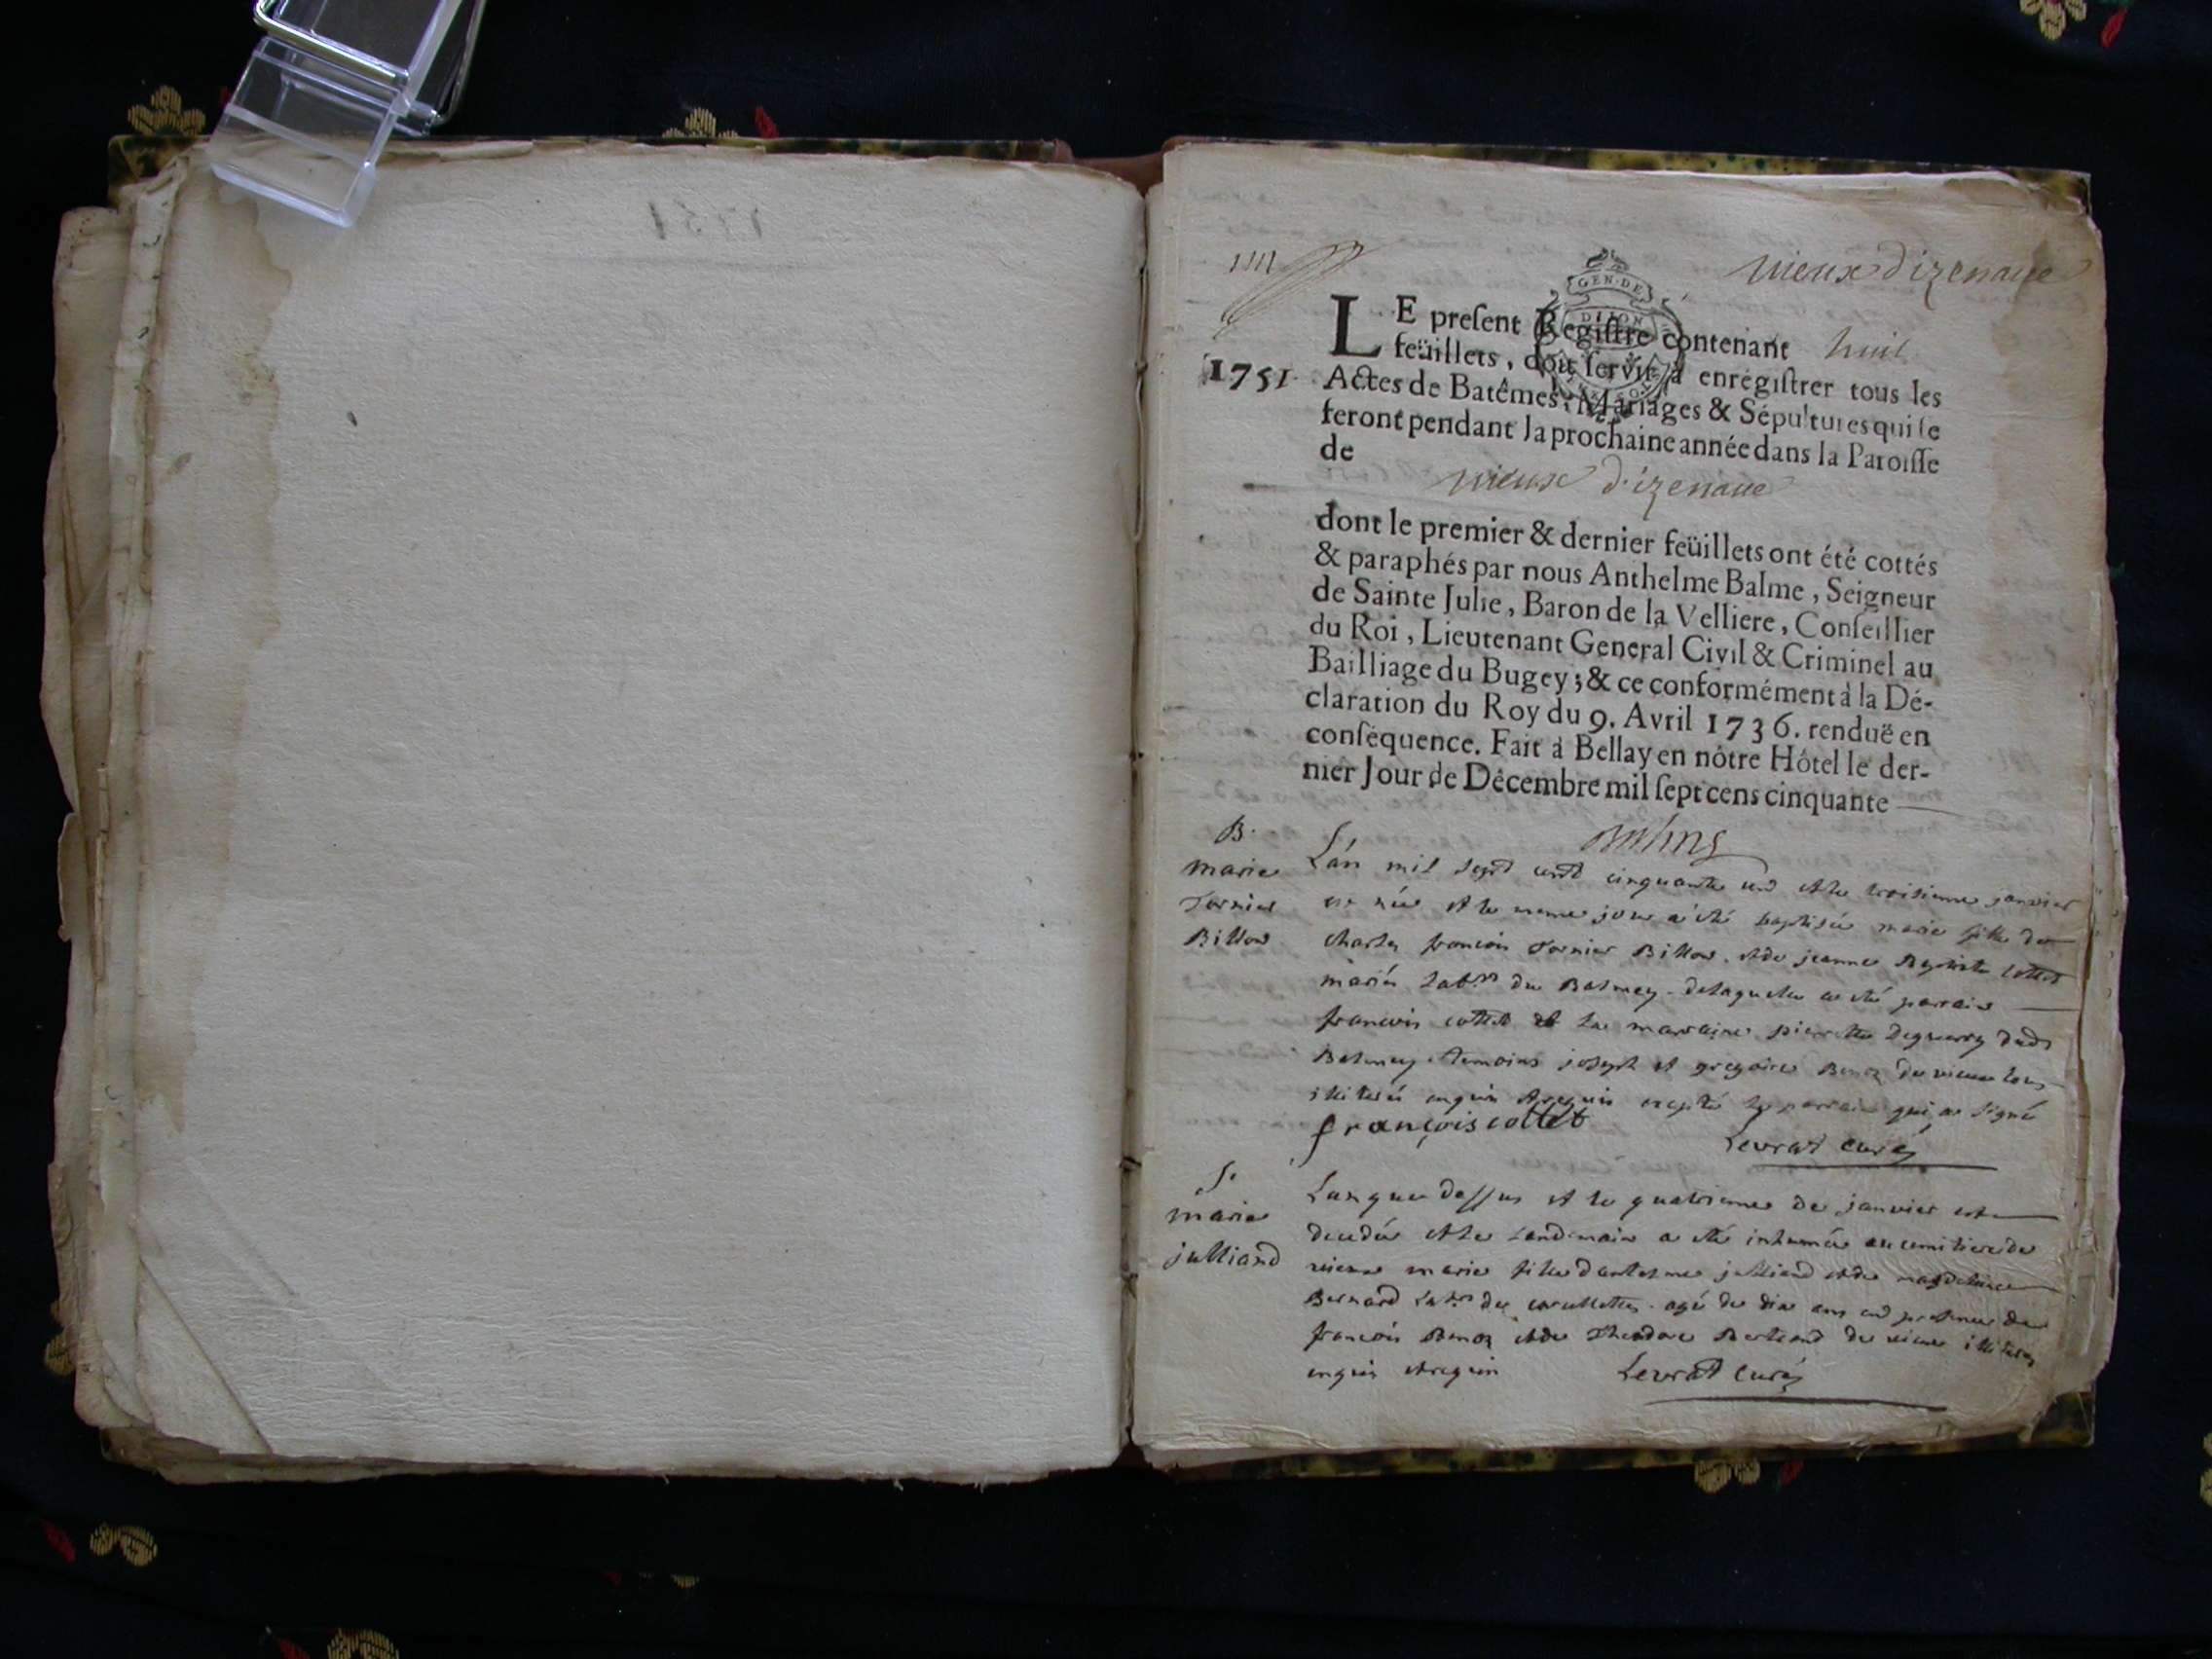 1751
vieux d'izenave
GEN·DE
DIJON
LE preſent Regiſtre contenant huit
feüillets, doit ſervir à enregiſtrer tous les
1751
Actes de Batêmes, Mariages & Sépultures qui ſe
feront pendant la prochaine année dans la Paroiſſe
de
vieux d'izenave
dont le premier & dernier feüillets ont été cottés
& paraphés par nous Anthelme Balme, Seigneur
de Sainte Julie, Baron de la Velliere, Conſeillier
du Roi, Lieutenant General Civil & Criminel au
Bailliage du Bugey; & ce conformément à la Dé-
claration du Roy du 9. Avril 1736. renduë en
conſéquence. Fait à Bellay en nôtre Hôtel le der-
nier Jour de Décembre mil ſept cens cinquante
Balme
B.
marie
Tornier
Billon
L'an mil sept cent cinquante un et le troisieme janvier
est née et le meme jour a été baptisée marie fille de
charles francois Tornier Billon et de jeanne Baptiste cottet
mariés lab.rs du Balmey de laquelle a été parrain
francois cottet et la marraine pierrette Deguerry dud.
Balmey temoins joseph et gregoire Benoz de vieux tous
illiterés enquis et requis excepté le parrain qui a signé
françois cottet
Levrat curé
S.
marie
julliand
L'an que dessus et le quatrieme de janvier est
decedée et le landemain a été inhumée au cemitiere de
vieux marie fille d'antelme julliand et de magdelaine
Bernard lab.rs des agé de dix ans en presence de
francois Benoz et de Theodore Bertrand de vieux illiterés
enquis et requis
Levrat curé